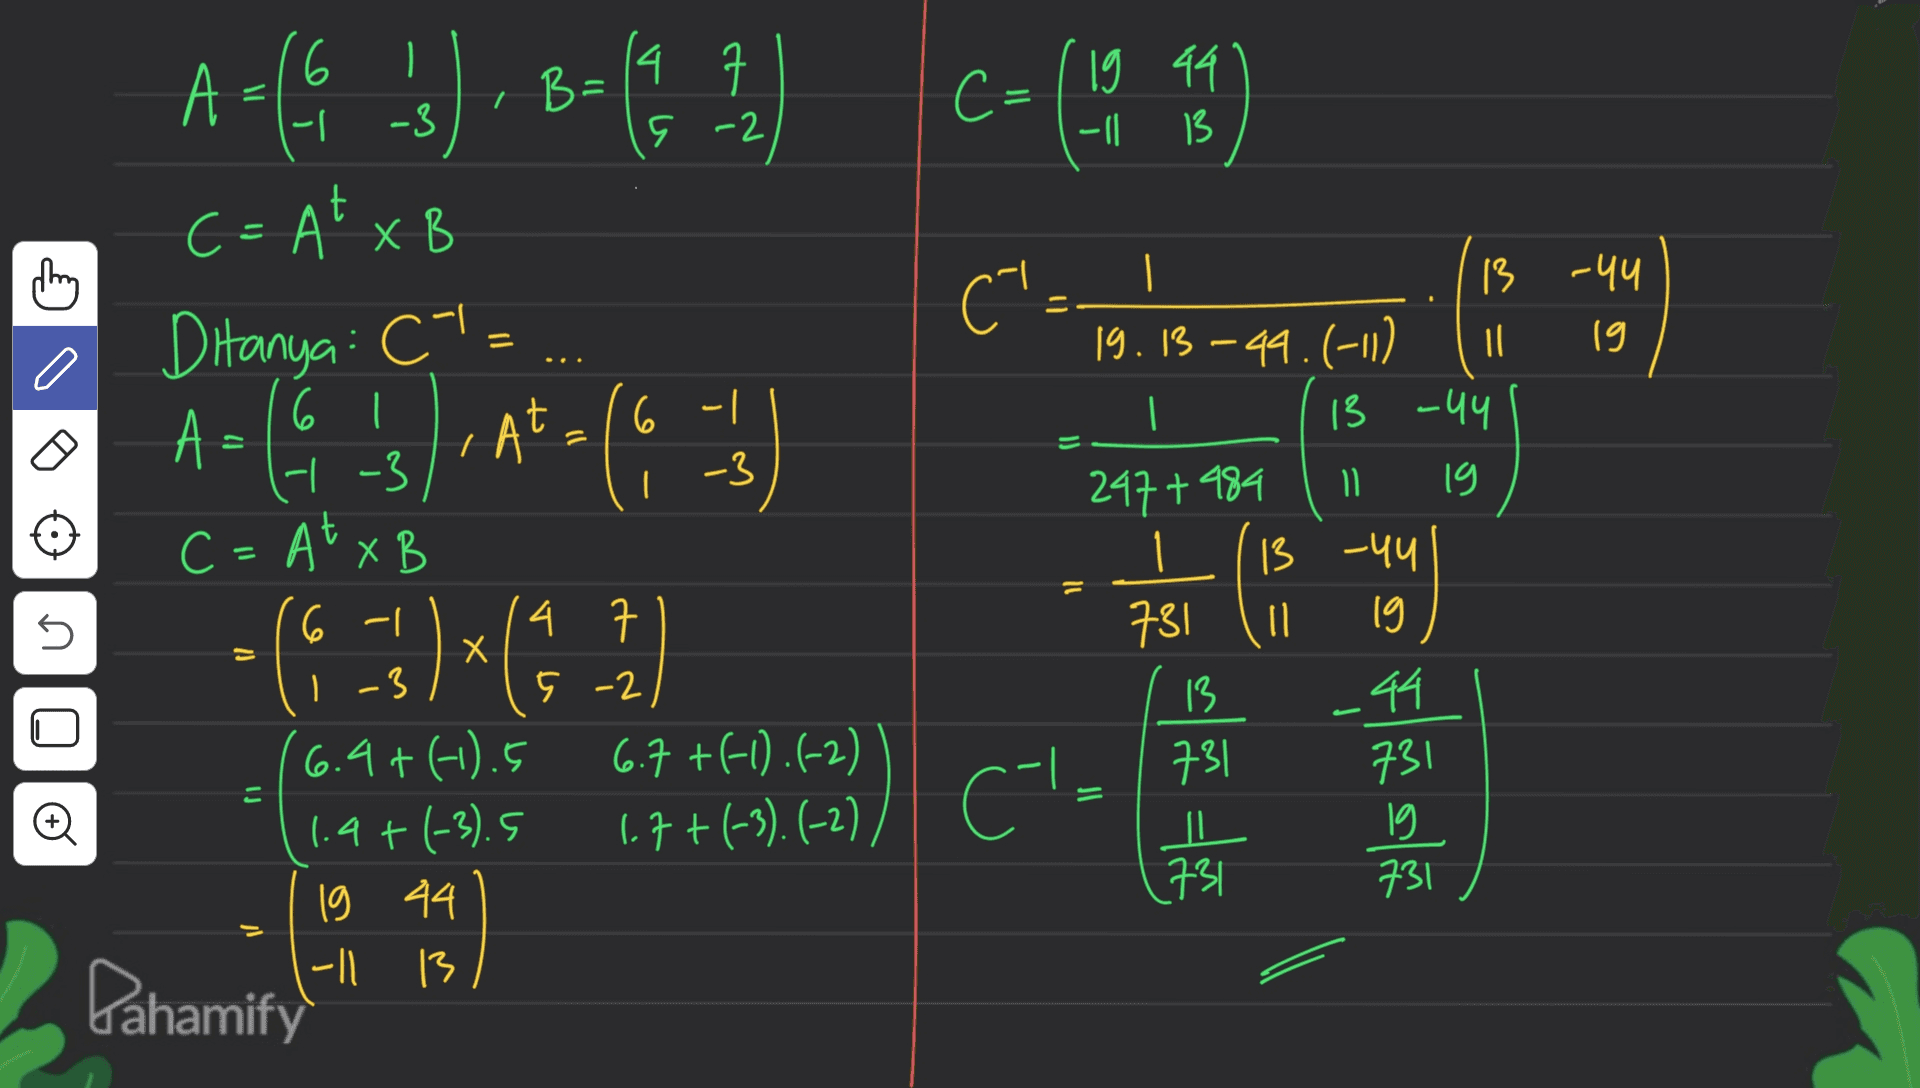 A = (6 1
-1 -3), B = (4 7
5 -2)
C = A^t x B
Ditanya: C^-1 = ...
A = (6 1
-1 -3), A^t = (6 -1
1 -3)
C = A^t x B
= (6 -1
1 -3) x (4 7
5 -2)
= (6.4 + (-1).5 6.7 + (-1).(-2)
1.4 + (-3).5 1.7 + (-3).(-2))
= (19 44
-11 13)
C = (19 44
-11 13)
C^-1 = 1 / 19.13 - 44.(-11) . (13 -44
11 19)
= 1 / 247 + 484 (13 -44
11 19)
= 1 / 731 (13 -44
11 19)
C^-1 = (13/731 -44/731
11/731 19/731)
Pahamify